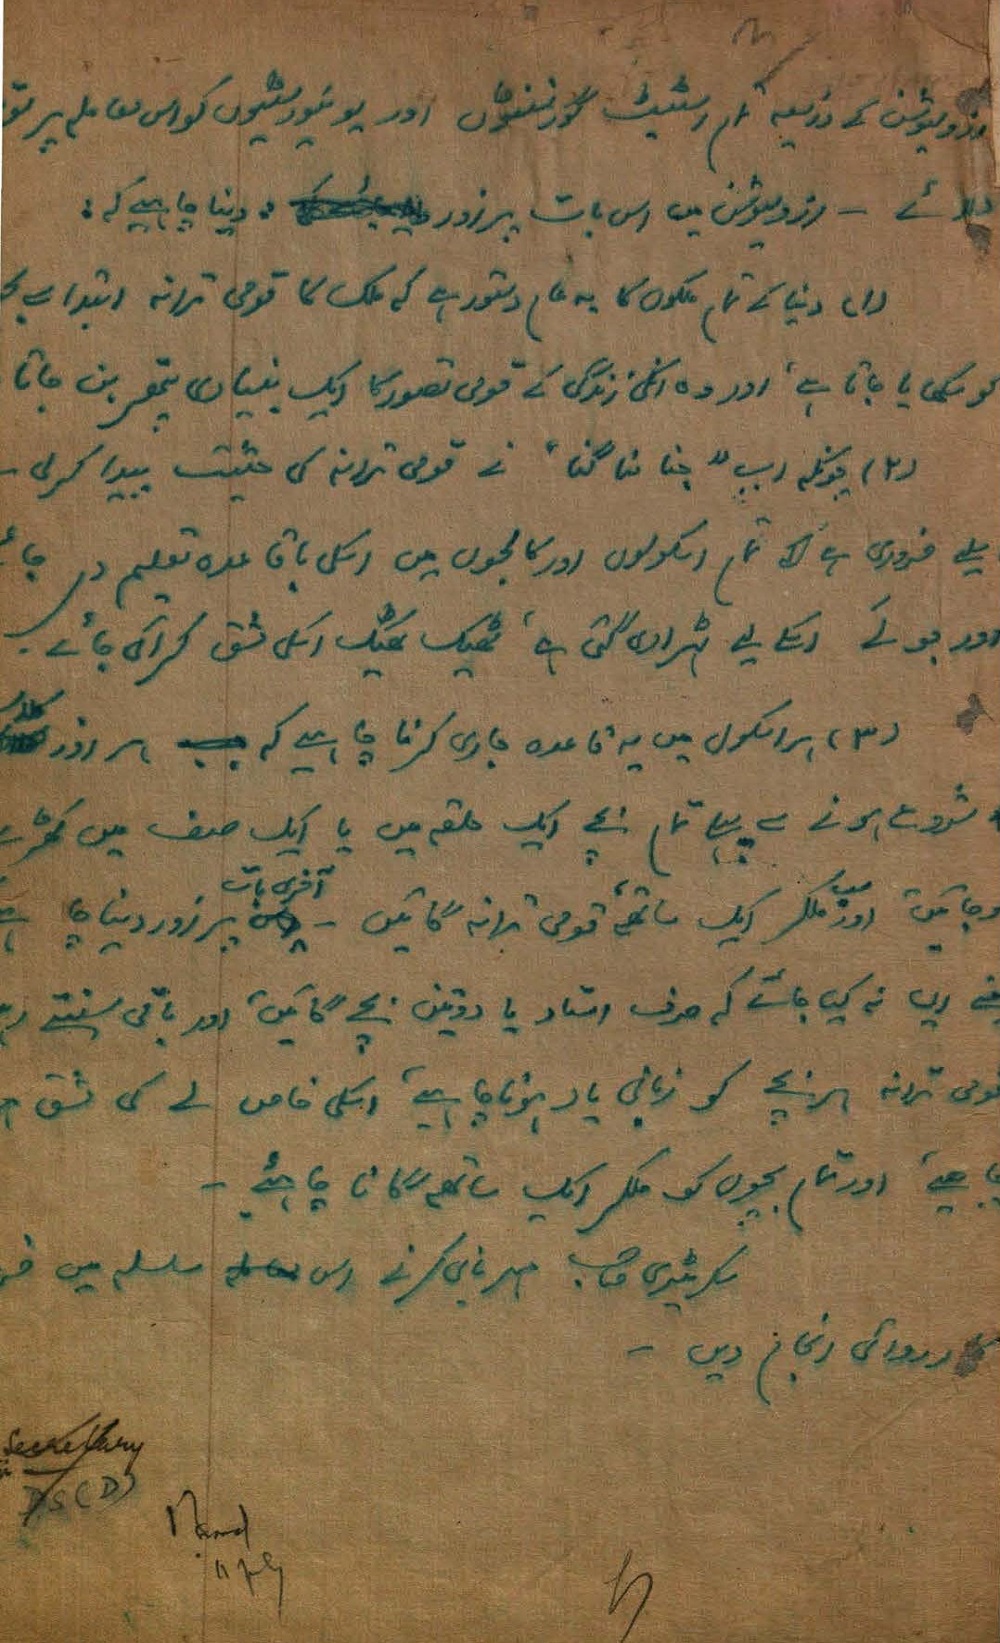 رزولیوشن کے ذریعہ تمام اسٹیٹ گورنمنٹوں اور یونیورسٹیوں کو اس معاملہ پر
دلائے - رزولیوشن میں اس بات پر زور دینا چاہیے کہ:
(۱) دنیا کے تمام ملکوں کا یہ عام دستور ہے کہ ملک کا قومی ترانہ ابتدا سے
کو سکھایا جاتا ہے، اور وہ انکی زندگی کے قومی تصور کا ایک بنیادی پتھر بن جاتا
(۲) چونکہ اب "جنا منا گنا" نے قومی ترانہ کی حیثیت پیدا کر لی -
لیے ضروری ہے کہ تمام اسکولوں اور کالجوں میں اسکی باقاعدہ تعلیم دی جائے
اور جو لے اسکے لیے ٹہرادی گئی ہے، ٹھیک ٹھیک اسکی مشق کرائی جائے -
(۳) ہر اسکول میں یہ قاعدہ جاری کرنا چاہیے کہ ہر روز
شروع ہونے سے پہلے تمام بچے ایک حلقہ میں یا ایک صف میں کھڑے
ہوجائیں اور سب ملکر ایک ساتھ قومی ترانہ گائیں - آخری بات پر زور دینا چاہیے
یعنے ایسا نہ کیا جائے کہ صرف استاد یا دو تین بچے گائیں اور باقی سنتے
قومی ترانہ ہر بچے کو زبانی یاد ہونا چاہیے، اسکی خاص لے کی مشق
چاہیے، اور تمام بچوں کو ملکر ایک ساتھ گانا چاہئے -
سکریٹری صاحب مہربانی کرکے اس سلسلہ میں
کارروائی انجام دیں -
Secretary
DS(D)